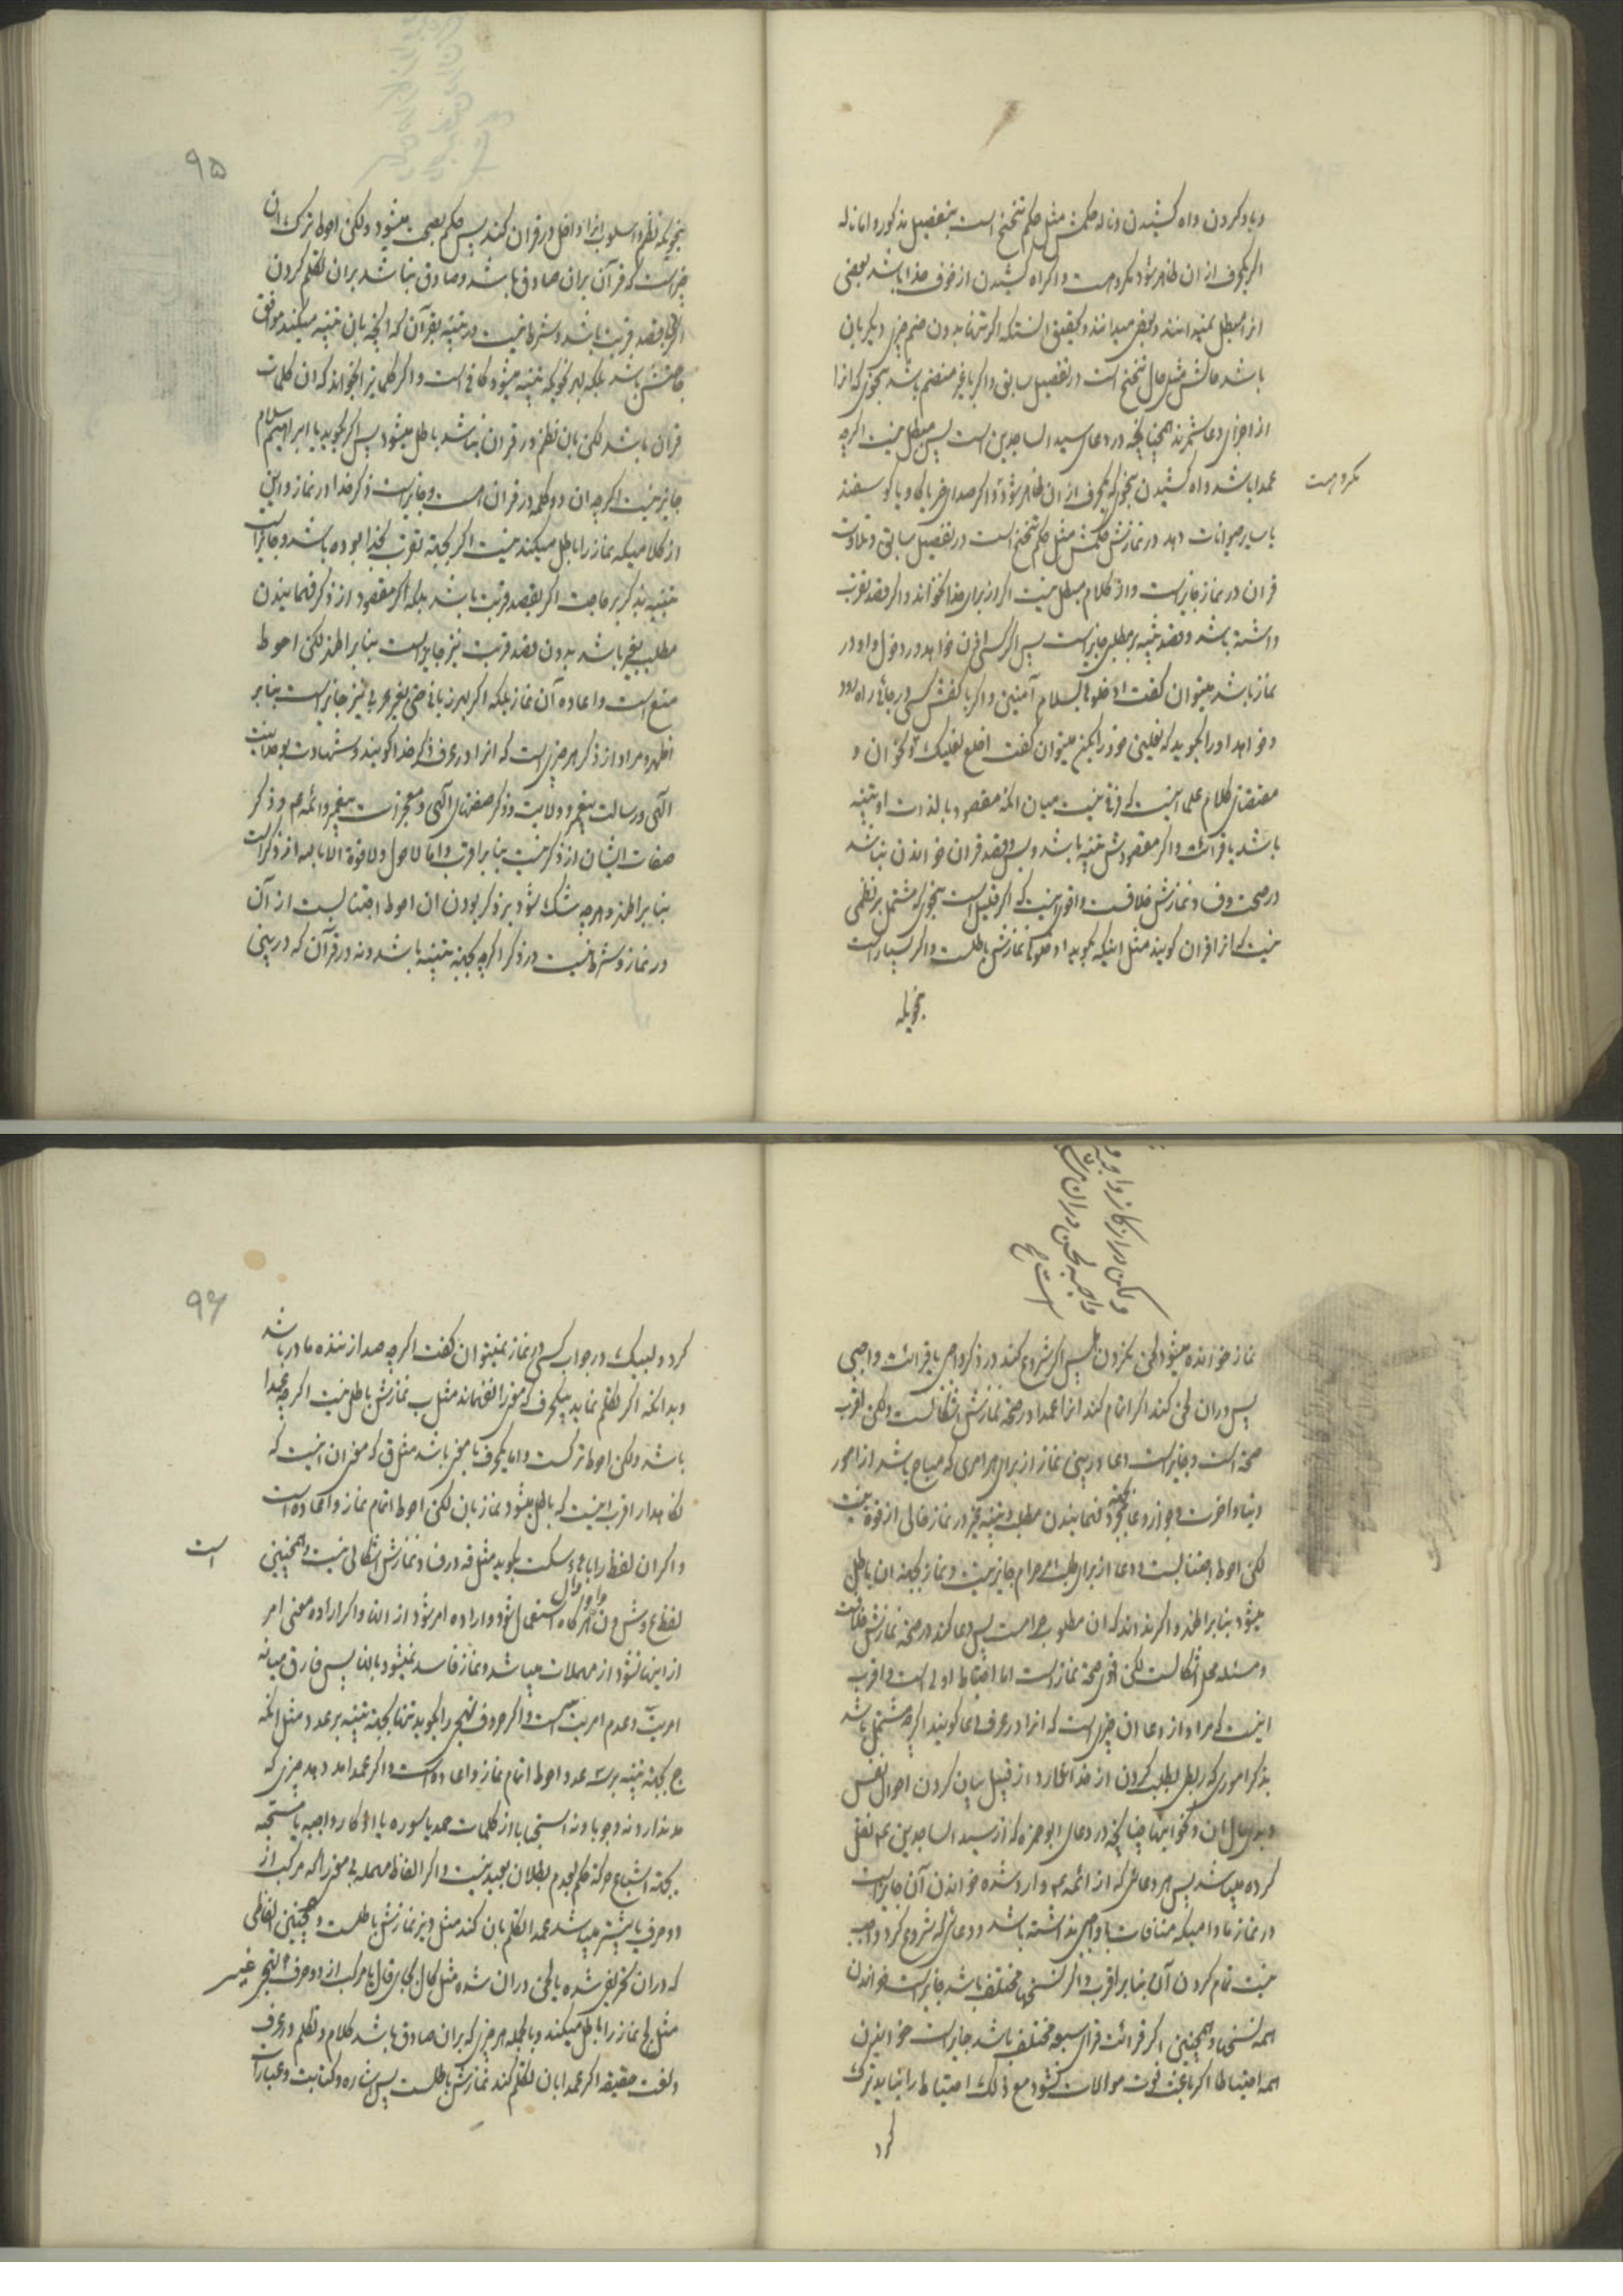 و باد کردن و اه کشیدن و ناله حکمش مثل حکم تنحنح است بتفصیل مذکور و اما ناله
اگر یکحرف از ان ظاهر شود مکروهست و اگر اه کشیدن از خوف خدا باشد بعضی
انرا مبطل نمیدانند و بعضی میدانند و تحقیق انستکه اگر تنها بدون ضم چیزی دیگر بان
باشد حالش مثل حال تنحنح است در تفصیل سابق و اگر باغیر منضم باشد بنحوی که انرا
از اجزای دعا شمرند همچنانچه در دعای سید الساجدین است پس مبطل نیست اگرچه
عمدا باشد و اه کشیدن بنحوی که یکحرف از ان ظاهر شود و اگر صدای خر یا گاو یا گوسفند
مکروهست
یا سایر حیوانات دهد در نمازش حکمش مثل حکم تنحنح است در تفصیل سابق و تلاوت
قران در نماز جایز است و از کلام مبطل نیست اگر از برای خدا بخواند و اگر قصد تقرب
داشته باشد و قصد تنبیه بر مطلبی جایز است پس اگر کسی اذن خواهد در دخول و او در
نماز باشد میتوان گفت ادخلوها بسلام آمنین و اگر با کفش کسی در جائی راه رود
و خواهد او را بگوید که نعلین خود را بکن میتوان گفت اخلع نعلیک و نحو ان و
مقتضای کلام علما اینست که فرقی نیست میان انکه مقصود بالذات او تنبیه
باشد یا قرائت و اگر مقصودش تنبیه باشد و بس و قصد قران خواندن نباشد
در صحت و فساد نمازش خلافست و اقوی اینست که اگر قلیل است بنحوی که مشتمل بر نظمی
نیست که انرا قران گویند مثل اینکه بگوید ادخلوها نمازش باطلست و اگر بسیار است
بنحویکه
۹۵
بنحویکه نظم و اسلوب انرا داخل در قران کند پس حکم بصحت میشود ولکن احوط ترک ان
چیزاست که قرآن بران صادق باشد و صادق نباشد بران تکلم کردن
اگر بقصد قربت باشد و شرط نیست در تنبیه بقرآن که انچه بان تنبیه میکند موافق
حاجتش باشد بلکه بهر نحویکه تنبیه میشود کافی است و اگر کلماتیرا بخواند که ان کلمات
قران باشد لکن بان نظم در قران نباشد باطل میشود پس اگر بگوید یا ابراهیم سلام
جایز نیست اگرچه ان دو کلمه در قران است و جایز است ذکر خدا در نماز و این
از کلامیکه نماز را باطل میکند نیست اگر بجهة تقرب بخدا بوده باشد و جایز است
تنبیه بذکر بر حاجت اگر بقصد قربت باشد بلکه اگر مقصود از ذکر فهمانیدن
مطلب بغیر باشد بدون قصد قربت نیز جایز است بنابر اظهر لکن احوط
منع است و اعاده آن نماز بلکه اگر بهر زبانی حتی بغیر عربی نیز جایز است بنابر
اظهر و مراد از ذکر هر چیزی است که انرا در عرف ذکر خدا گویند و شهادت بوحدانیت
الهی و رسالت پیغمبر و ولایت و ذکر صفتهای الهی و معجزات پیغمبر و ائمه ع و ذکر
صفات ایشان از ذکر نیست بنابر اقرب و اما لا حول و لا قوة الا بالله از ذکر است
بنابر اظهر و هرچه شک شود بر ذکر بودن ان احوط اجتنابست از آن
در نماز و شرط نیست در ذکر اگرچه بجهة تنبیه باشد و نه در قرآن که در پی
ولکن در اذکار واجبه و
واجبه لحن دران
است ح
نماز خوانده میشود لحن نکردن پس اگر شروع کند در ذکر واجبی یا قرائت واجبی
پس دران لحن کند اگر اتمام کند انرا عمدا در صحة نمازش اشکالست ولکن اقرب
صحة است و جایز است دعا در پی نماز از برای هر امری که مباح باشد از امور
دنیا و اخرت و جواز دعا بجهة فهمانیدن مطلب و تنبیه بغیر در نماز خالی از قوة نیست
لکن احوط اجتنابست و دعا از برای طلب حرام جایز نیست و نماز بجهة ان باطل
میشود بنابر اظهر و اگر نداند که ان مطلوب حرامست پس دعا کند در صحة نمازش خلافست
و مسئله محل اشکالست لکن اقوی صحة نماز است اما احتیاط اولی است و اقرب
اینست که مراد از دعا ان چیزی است که انرا در عرف دعا گویند اگرچه مشتمل باشد
بذکر اموری که ربطی بطلب کردن از خدا ندارد از قبیل بیان کردن احوال نفس
و بدی حال ان و نحو اینها چنانچه در دعای ابوحمزه که از سید الساجدین ع نقل
کرده میباشد پس هر دعائی که از ائمه ع وارد شده خواندن آن جایز است
در نماز مادامیکه منافات با واجبی نداشته باشد و دعائی که شروع کرد واجب
نیست تمام کردن آن بنابر اقرب و اگر نسخها مختلف باشد جایز است خواندن
همه نسخها و همچنین اگر قرائت قراء سبعه مختلف باشد جایز است خواندن
همه احتیاطا اگر باعث فوت موالات نشود مع ذلک احتیاط را نباید ترک
کرد
۹۶
کرد و لبیک در جواب کسی در نماز نمیتوان گفت اگرچه صدا زننده مادر باشد
و بدانکه اگر تکلم نماید بیکحرف که معنی را نفهماند مثل ب نمازش باطل نیست اگرچه عمدا
باشد ولکن احوط ترکست و اما یکحرف با معنی باشد مثل ق که معنی ان اینست که
نگاهدار اقرب اینست که باطل میشود نماز بان لکن احوط اتمام نماز و اعاده است
و اگر ان لفظ را با هاء سکت بگوید مثل قه در فساد نمازش اشکالی نیست و همچنین
است
لفظ ع و ش و ن هرگاه استعمال شود و اراده امر شود از انها و اگر اراده معنی امر
از اینها نشود از مهملات میباشد و نماز فاسد نمیشود بانها پس فارق میانه
امریت و عدم امریت نیست و اگر حروف تهجی را بگوید تنها بجهة تنبیه بر عدد مثل انکه
ج بجهة تنبیه بر سه عدد احوط اتمام نماز و اعاده است و اگر عمدا مد دهد چیزی که
مد ندارد نه وجوبا و نه استحبابا از کلمات حمد یا سوره یا اذکار واجبه یا مستحبه
بجهة اشباع حرکة حکم بعدم بطلان بعید نیست و اگر الفاظ مهمله بی معنی را که مرکب از
دو حرف یا بیشتر میباشد عمدا تکلم بان کند مثل دیز نمازش باطلست و همچنین الفاظی
که دران تحریف شده یا لحن دران شده مثل کال بجای قال یا مرکب از دو حرف تهجی غیر
مثل بح نماز را باطل میکند و بالجمله هر چیزی که بران صادق باشد کلام و تکلم در عرف
و لغت حقیقه اگر عمدا بان تکلم کند نمازش باطلست پس اشاره و کتابت و عبارات